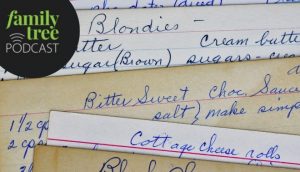 family
tree
PODCAST
Blondies -
butter cream-butter
sugar (Brown) sugars-crea
Bitter Sweet Choc. Sauc
salt, make simp
1 1/2 cp
2 cps
Cottage cheese rolls